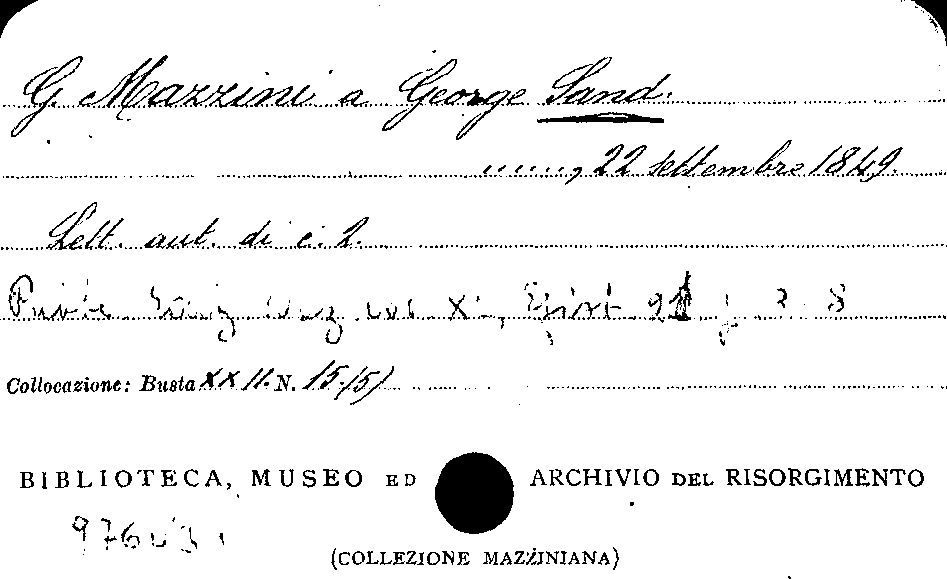 G. Mazzini a George Sand.
......, 22 settembre 1849.
Lett. aut. di c. 2.
Epist.
Collocazione: Busta XXII. N. 15.(5)
BIBLIOTECA, MUSEO ED ARCHIVIO DEL RISORGIMENTO
(COLLEZIONE MAZZINIANA)